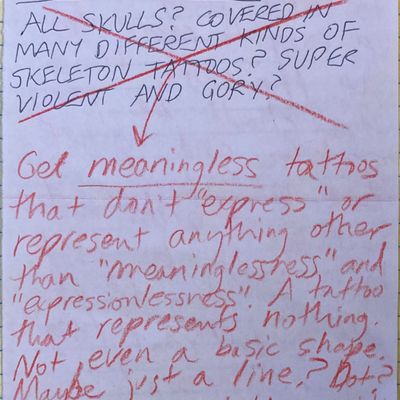 ALL SKULLS? COVERED IN
MANY DIFFERENT KINDS OF
SKELETON TATTOOS? SUPER
VIOLENT AND GORY?
Get meaningless tattoos
that don't "express" or
represent anything other
than "meaninglessness" and
"expressionlessness". A tattoo
that represents nothing.
Not even a basic shape.
Maybe just a line? Dot?